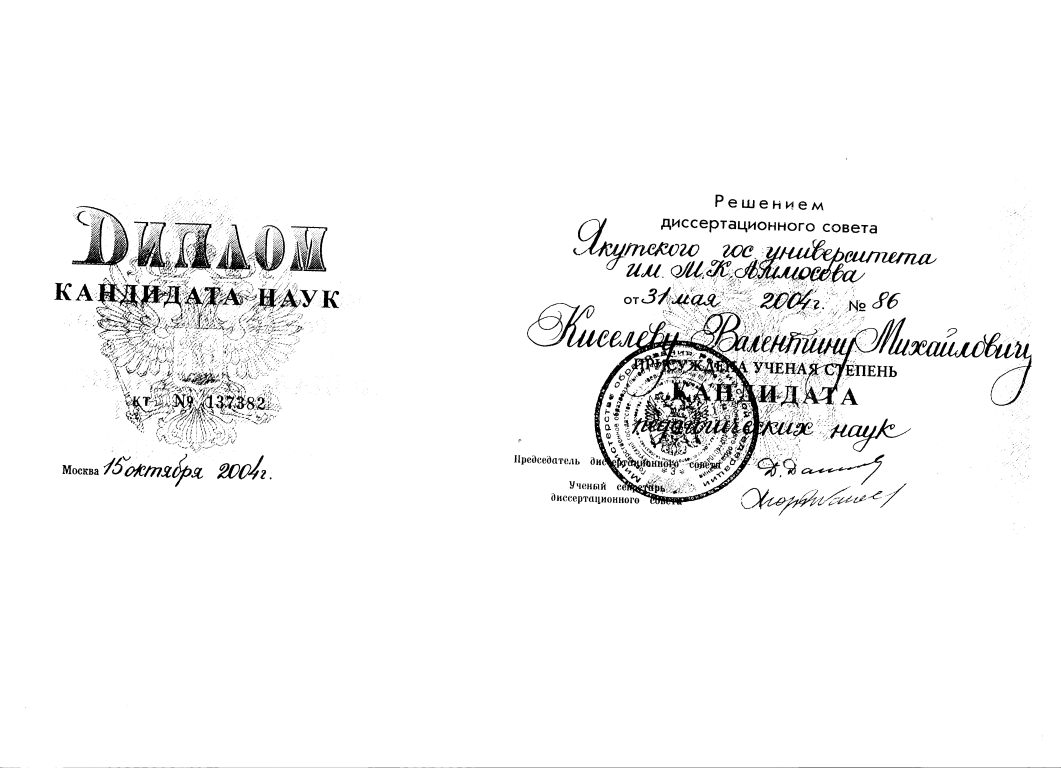 ДИПЛОМ
КАНДИДАТА НАУК
КТ № 137382
Москва 15 октября 2004г.
Решением
диссертационного совета
Якутского гос университета
им. М.К. Аммосова
от 31 мая 2004г. № 86
Киселеву Валентину Михайловичу
ПРИСУЖДЕНА УЧЕНАЯ СТЕПЕНЬ
КАНДИДАТА
педагогических наук
Председатель диссертационного совета
Ученый секретарь
диссертационного совета